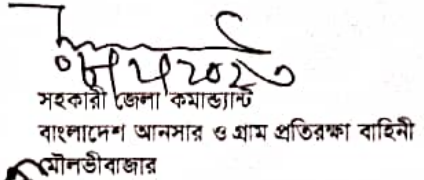 সহকারী জেলা কমান্ড্যান্ট
বাংলাদেশ আনসার ও গ্রাম প্রতিরক্ষা বাহিনী
মৌলভীবাজার